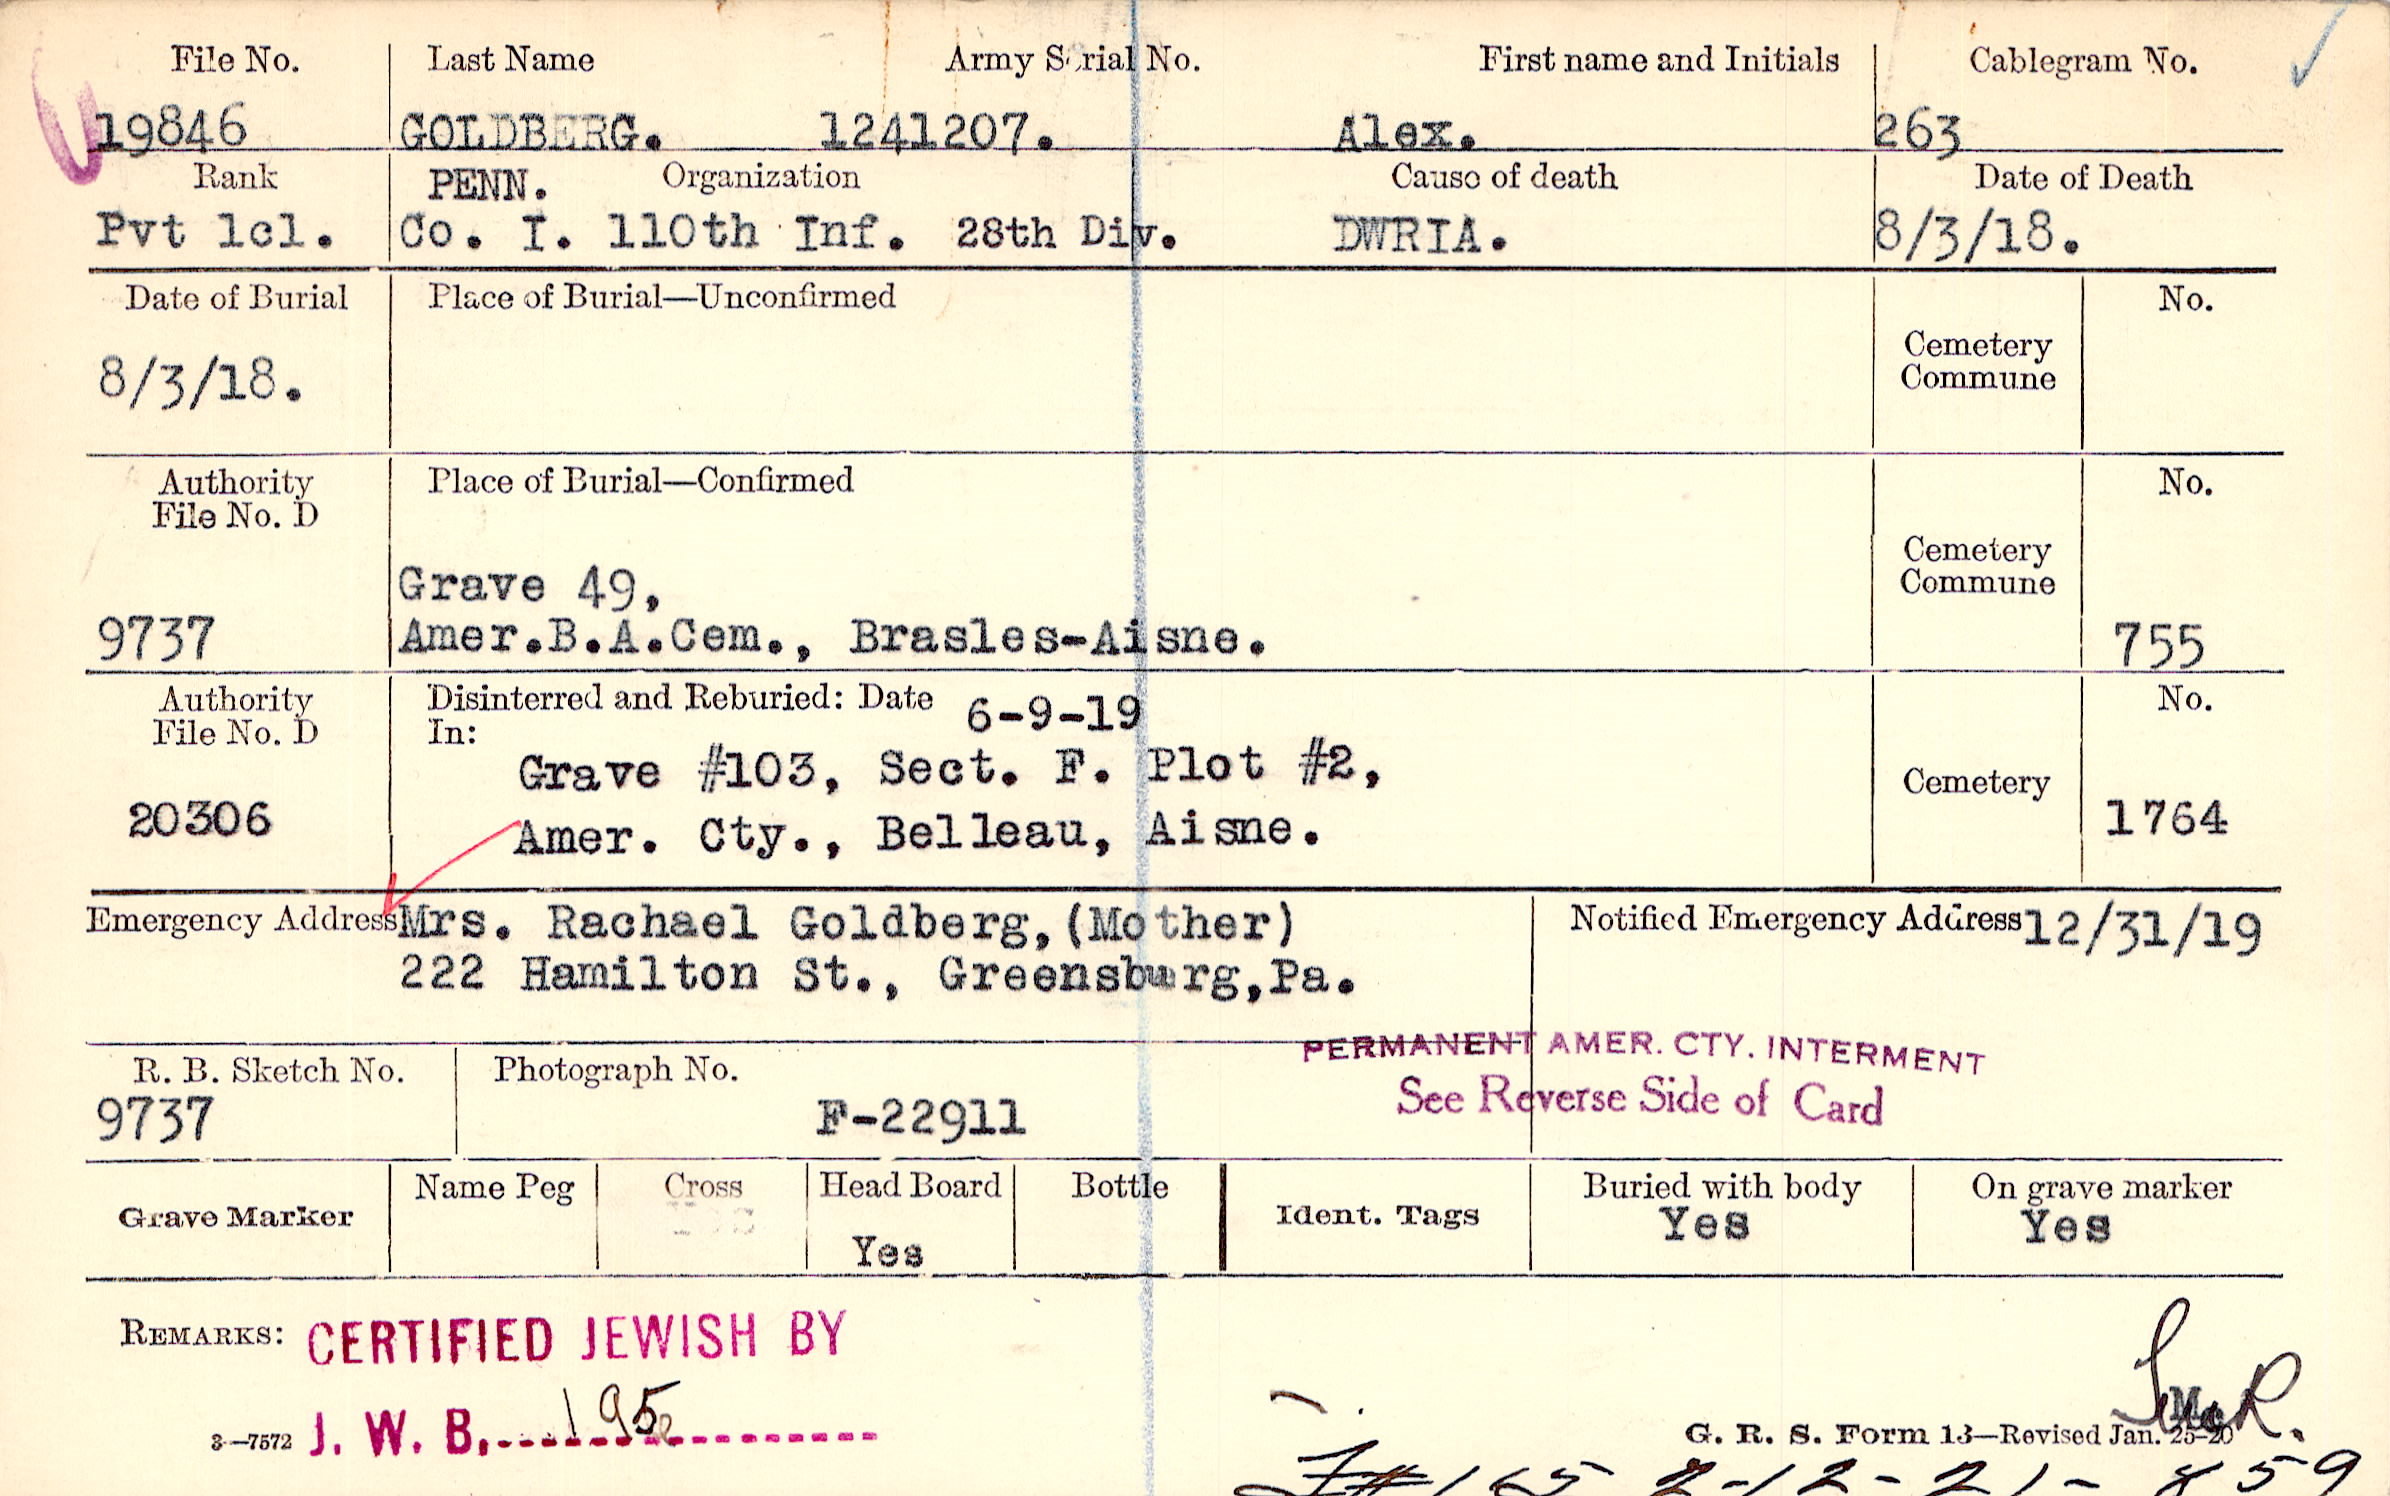 File No. Last Name Army Serial No. First name and Initials Cablegram No.
19846 GOLDBERG. 1241207. Alex. 263
Rank PENN. Organization Cause of death Date of Death
Pvt 1cl. Co. I. 110th Inf. 28th Div. DWRIA. 8/3/18.
Date of Burial Place of Burial—Unconfirmed No.
Cemetery
Commune
8/3/18.
Authority Place of Burial—Confirmed No.
File No. D
Cemetery
Commune
Grave 49,
9737 Amer.B.A.Cem., Brasles-Aisne. 755
Authority Disinterred and Reburied: Date 6-9-19 No.
File No. D In:
Grave #103, Sect. F. Plot #2,
Cemetery
20306 Amer. Cty., Belleau, Aisne. 1764
Emergency Address Mrs. Rachael Goldberg,(Mother) Notified Emergency Address 12/31/19
222 Hamilton St., Greensburg,Pa.
PERMANENT AMER. CTY. INTERMENT
R. B. Sketch No. Photograph No. See Reverse Side of Card
9737 F-22911
Name Peg Cross Head Board Bottle Buried with body On grave marker
Grave Marker Ident. Tags Yes Yes
Yes
REMARKS: CERTIFIED JEWISH BY
J. W. B. 195
3—7572 G. R. S. Form 13—Revised Jan. 25-20
2-12-21- 859